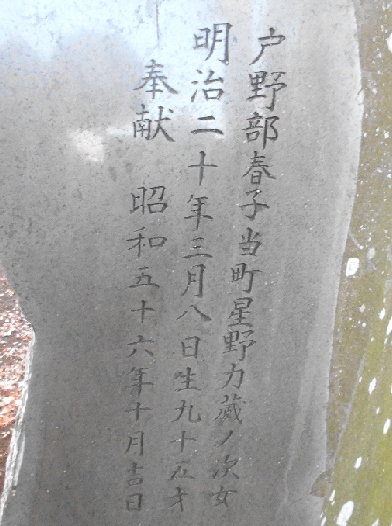 戸野部春子当町星野力蔵ノ次女
明治二十年三月八日生九十五才
奉献 昭和五十六年十月吉日